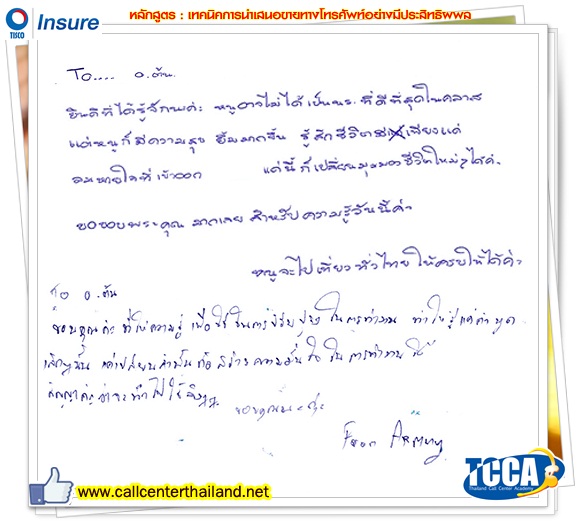 TISCO Insure
หลักสูตร : เทคนิคการนำเสนอขายทางโทรศัพท์อย่างมีประสิทธิผล
To.... อ.ต้น.
ยินดีที่ได้รู้จักนะค่ะ หนูอาจไม่ได้เป็นนร. ที่ดีที่สุดในคลาส
แต่หนูก็มีความสุข ยิ้มมากขึ้น รู้สึกชีวิตมีเพียงแค่
ลมหายใจที่เข้าออก แค่นี้ก็เปลี่ยนมุมมองชีวิตใหม่ๆได้ค่ะ
ขอขอบพระคุณ มากเลย สำหรับความรู้วันนี้ค่ะ
หนูจะไปเที่ยวทั่วไทยให้ครบให้ได้ค่ะ
To อ.ต้น
ขอบคุณค่ะ ที่ให้ความรู้ เพื่อใช้ในการปรับปรุงในการทำงาน ทำให้รู้แค่คำพูด
เล็กๆนั้น แค่เปลี่ยนคำนั้นก็สร้างความมั่นใจในการทำงานได้
สัญญาค่ะว่าจะทำไปใช้จริงๆ
ขอบคุณนะค่ะ
From
TCCA
Thailand Call Center Academy
www.callcenterthailand.net